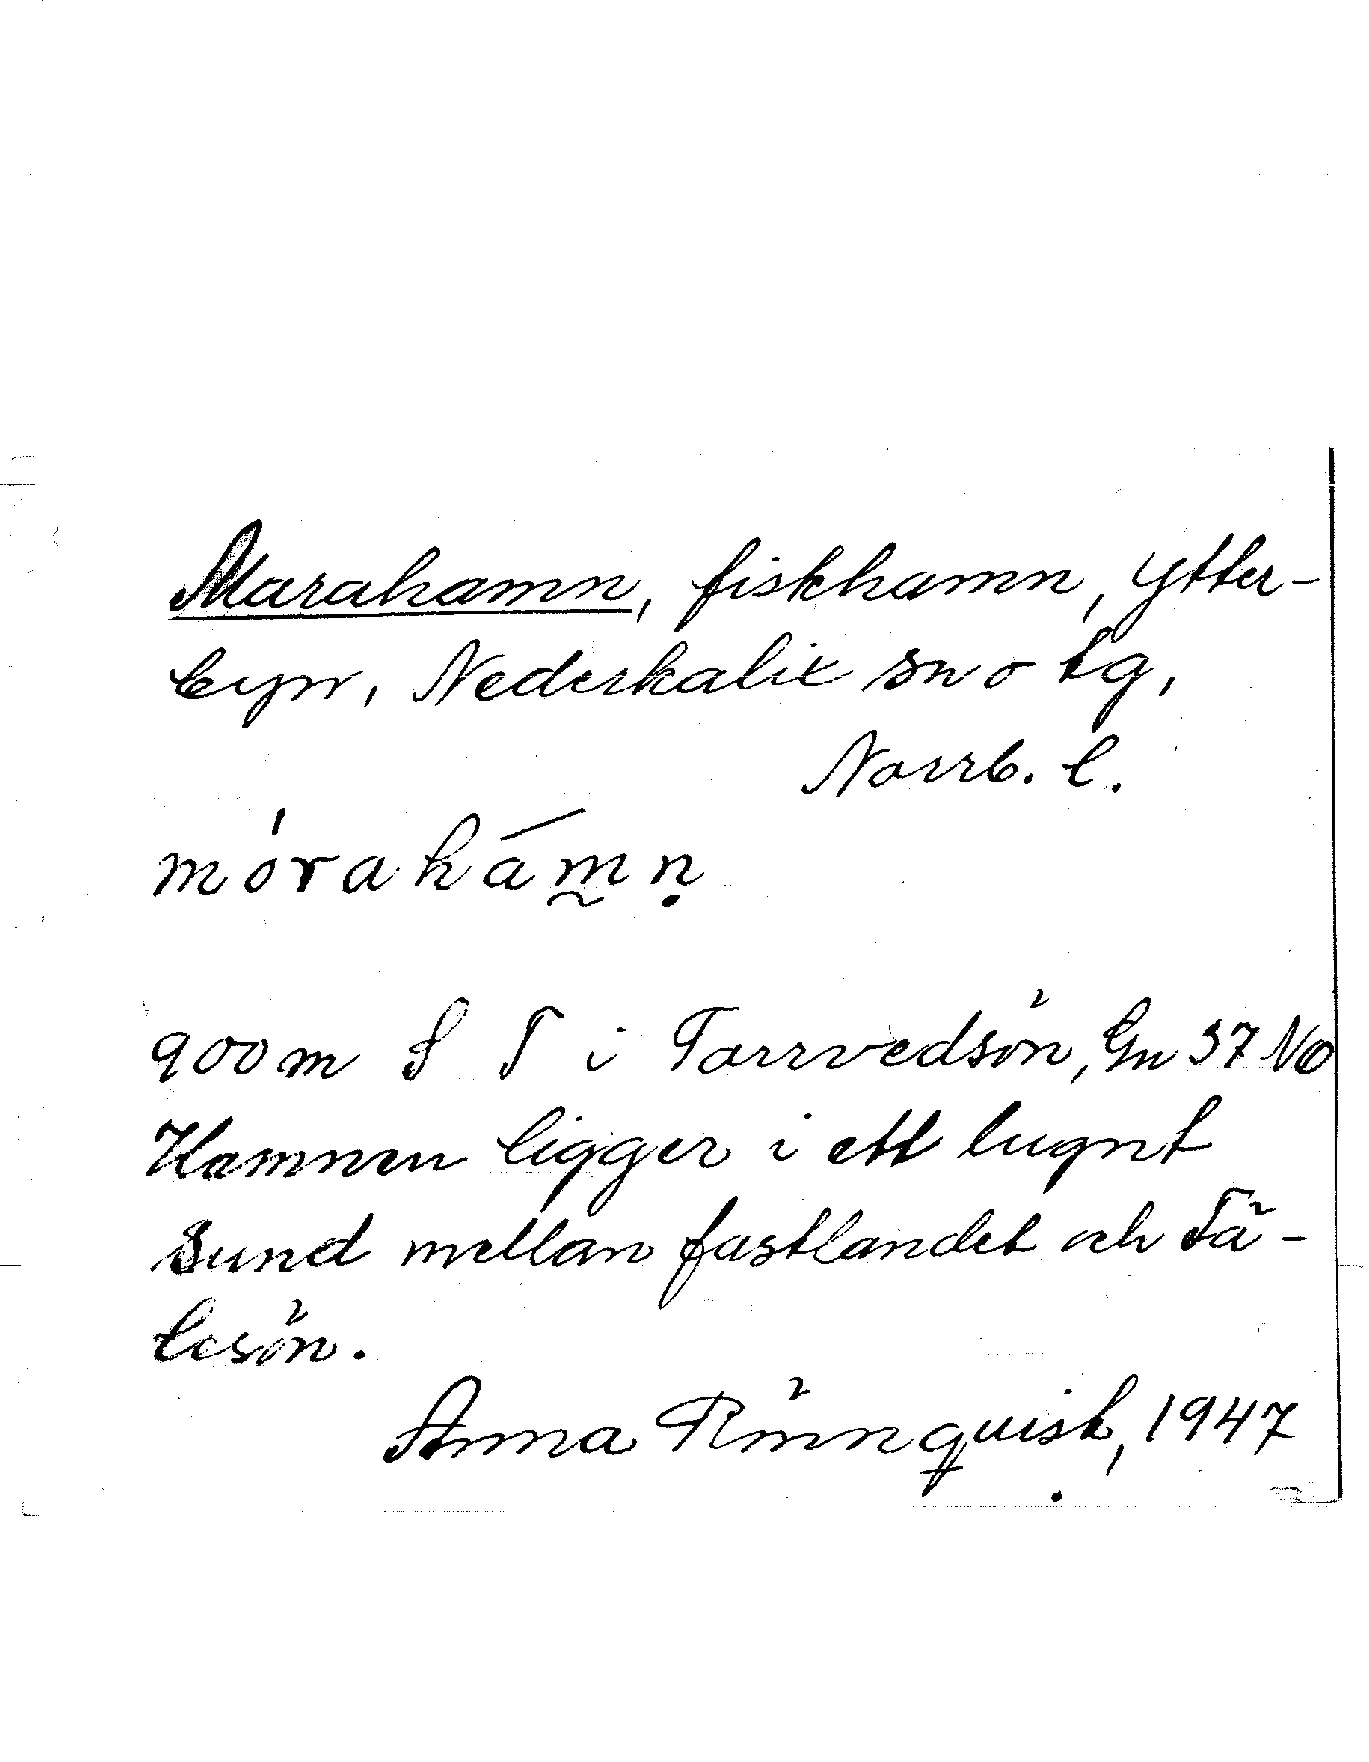 Marahamn, fiskhamn, Ytter-
byn, Nederkalix sn o tg,
Norrb. l.
mórahámn̥
900 m S T i Torrvedsön, Gn 37 NO
Hamnen ligger i ett lugnt
sund mellan fastlandet och Tä-
lesön.
Anna Rönnquist, 1947